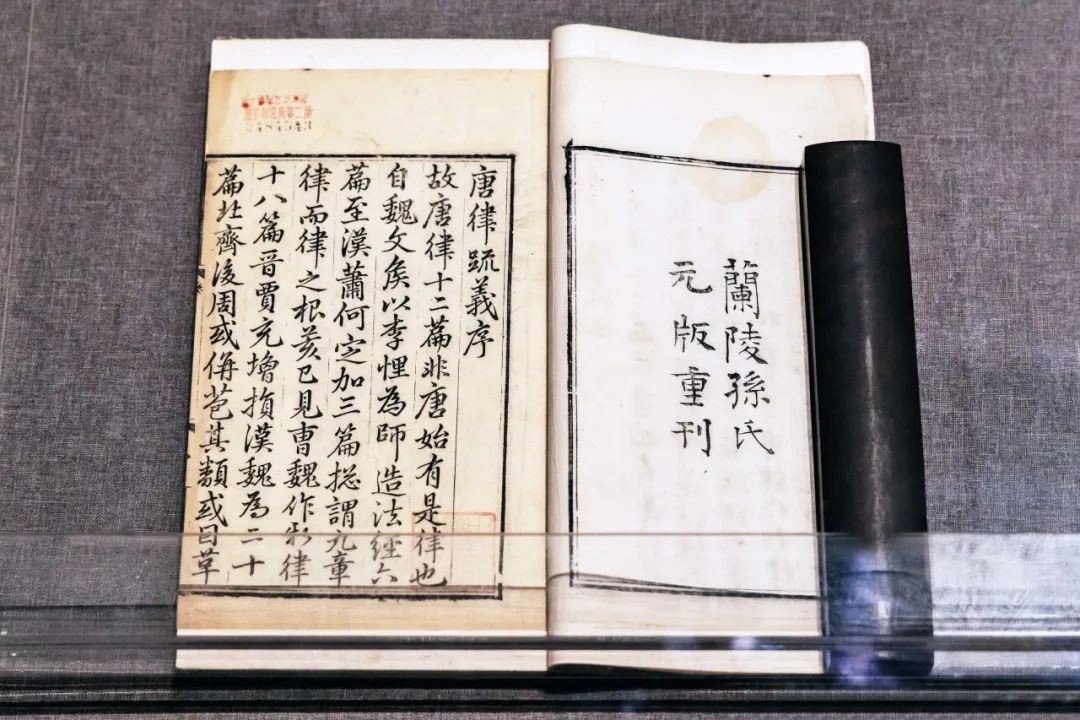 蘭陵孫氏
元版重刊
唐律䟽義序
故唐律十二篇非唐始有是律也
自魏文矦以李悝為師造法經六
篇至漢蕭何定加三篇揔謂九章
律而律之根荄已見曹魏作新律
十八篇晉賈充增損漢魏為二十
篇北齊後周或併苞其類或因革